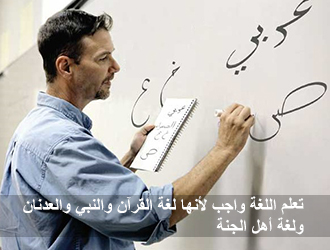 عربي
خ ع
ص
ص
تعلم اللغة واجب لأنها لغة القرآن والنبي والعدنان
ولغة أهل الجنة